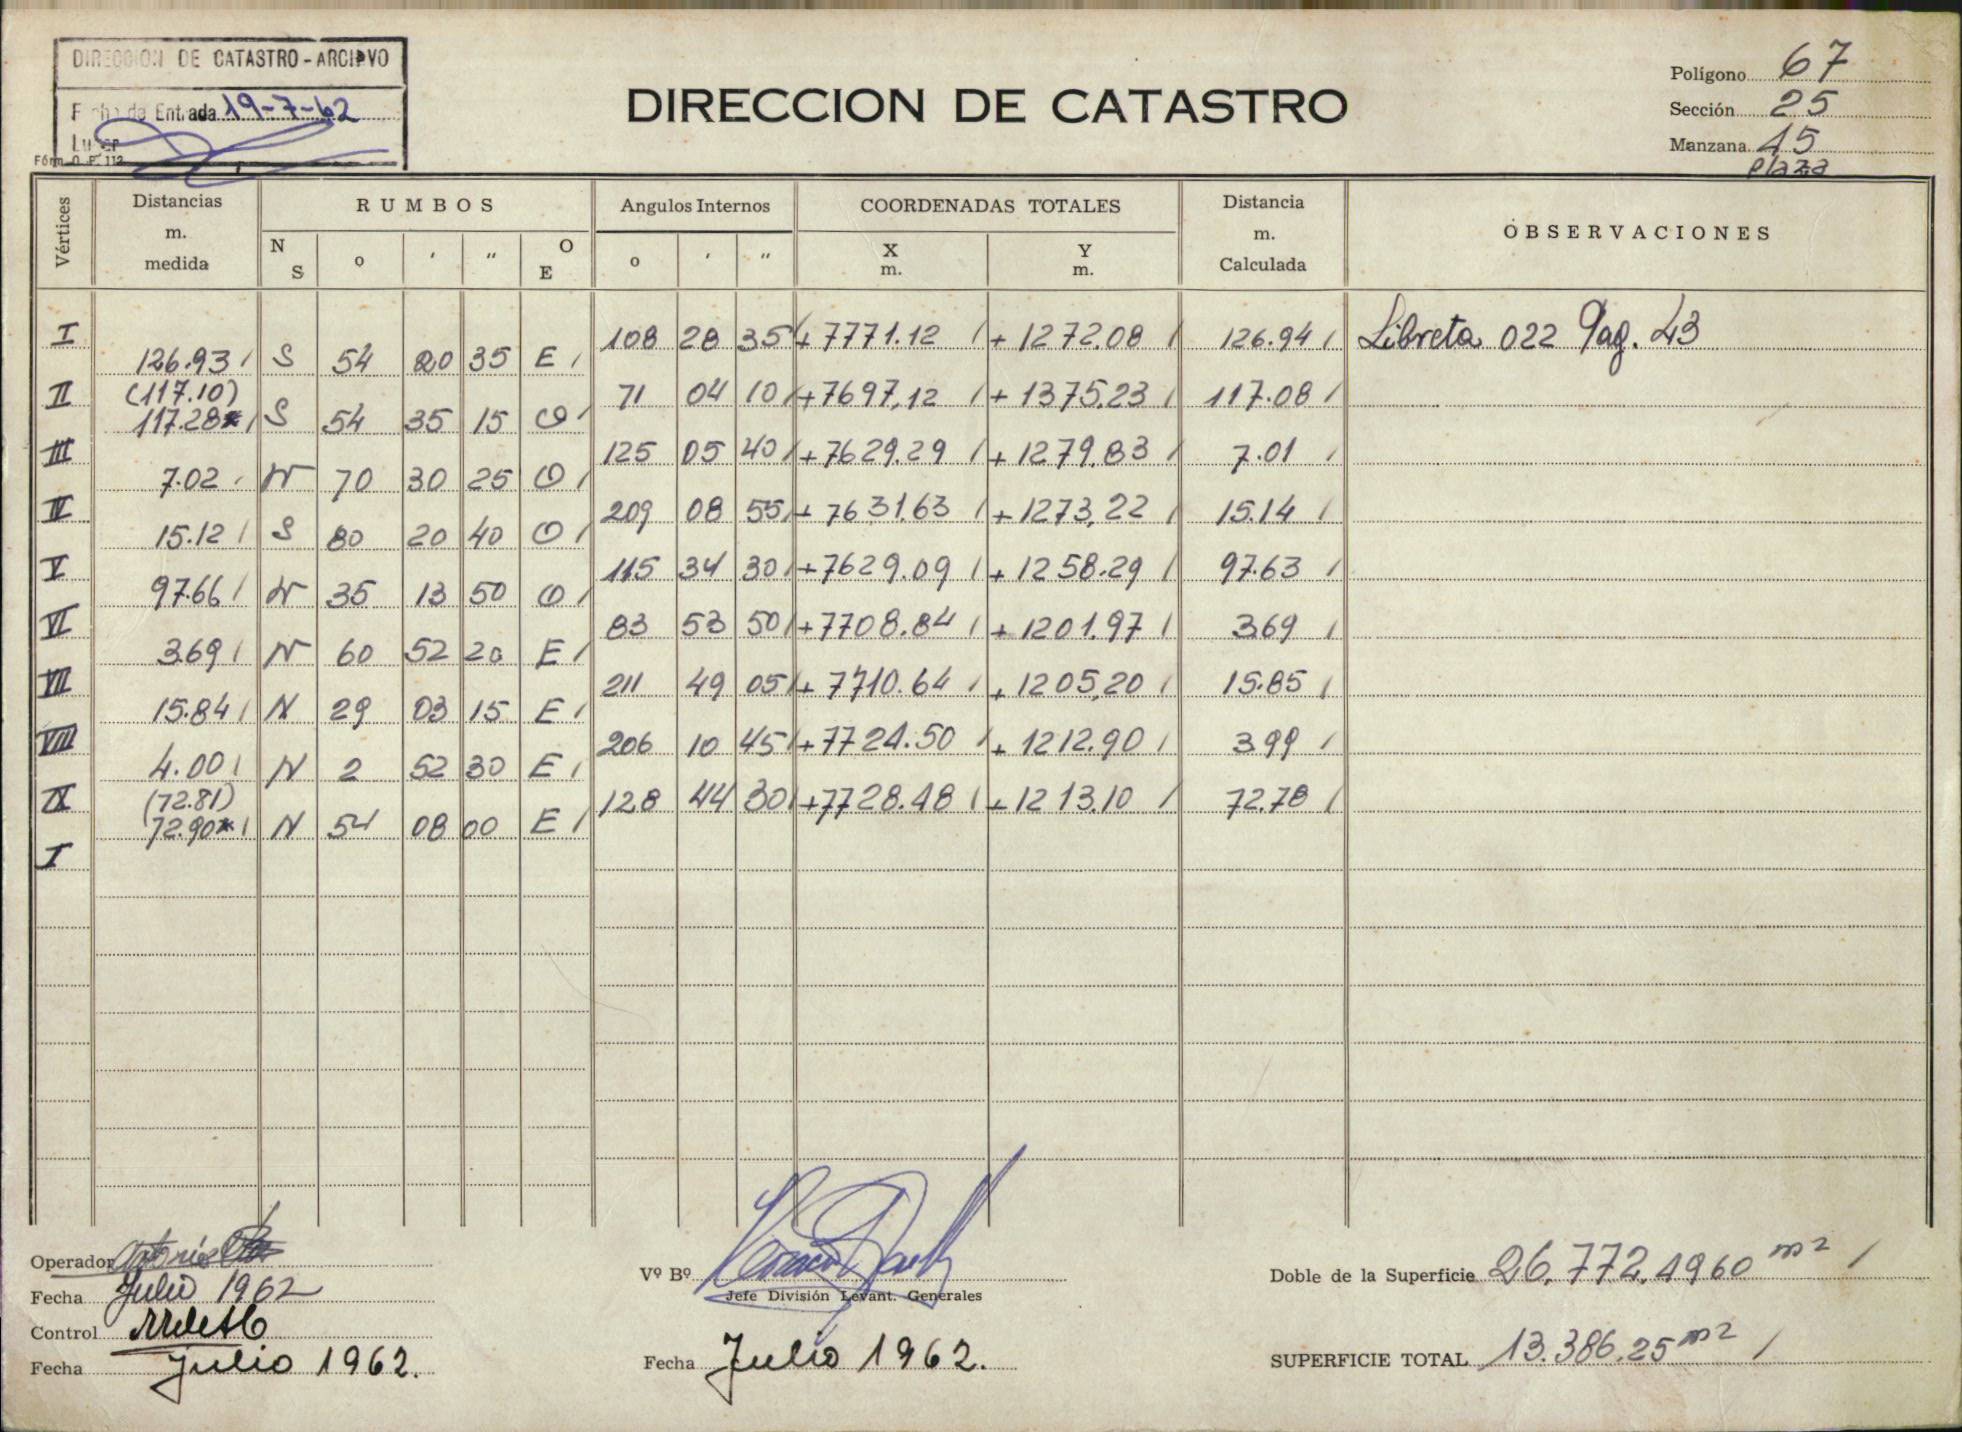 DIRECCION DE CATASTRO - ARCHIVO
Fecha de Entrada 19-7-62
Fórm. O. P. 112
DIRECCION DE CATASTRO
Polígono 67
Sección 25
Manzana 15
Plaza
Vértices
Distancias m. medida
RUMBOS
N S o ' " O E
Angulos Internos
o ' "
COORDENADAS TOTALES
X m. Y m.
Distancia m. Calculada
OBSERVACIONES
I 108 28 35 +7771.12 +1272.08 126.94 Libreta 022 Pag. 43
126.93 S 54 20 35 E
II (117.10) 71 04 10 +7697,12 +1375,23 117.08
117.28* S 54 35 15 O
III 125 05 40 +7629.29 +1279.83 7.01
7.02 N 70 30 25 O
IV 209 08 55 +7631.63 +1273,22 15.14
15.12 S 80 20 40 O
V 115 34 30 +7629.09 +1258.29 97.63
97.66 N 35 13 50 O
VI 83 53 50 +7708.84 +1201.97 3.69
3.69 N 60 52 20 E
VII 211 49 05 +7710.64 +1205,20 15.85
15.84 N 29 03 15 E
VIII 206 10 45 +7724.50 +1212.90 3.99
4.00 N 2 52 30 E
IX (72.81) 128 44 30 +7728.48 +1213.10 72.78
72.90* N 54 08 00 E
I
Operador Antonio
Fecha Julio 1962
Control
Fecha Julio 1962.
Vº Bº
Jefe División Levant. Generales
Fecha Julio 1962.
Doble de la Superficie 26.772.4960 m2
SUPERFICIE TOTAL 13.386,25 m2